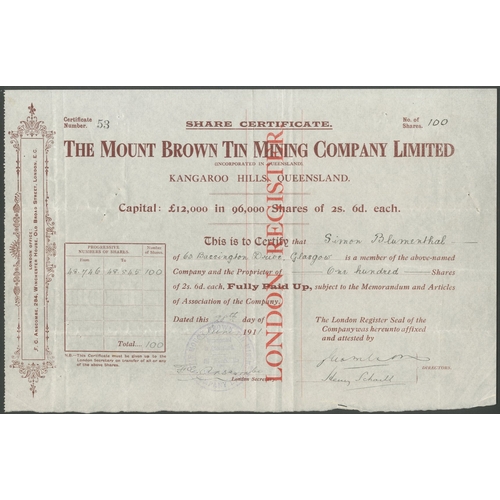 Certificate Number. 53
No. of Shares. 100
SHARE CERTIFICATE.
THE MOUNT BROWN TIN MINING COMPANY LIMITED
(INCORPORATED IN QUEENSLAND).
KANGAROO HILLS, QUEENSLAND.
Capital: £12,000 in 96,000 Shares of 2s. 6d. each.
This is to Certify that Simon Blumenthal
of 60 Drive, Glasgow is a member of the above-named
Company and the Proprietor of One hundred Shares
of 2s. 6d. each, Fully Paid Up, subject to the Memorandum and Articles
of Association of the Company.
Dated this day of
1911
London Secretary
The London Register Seal of the
Company was hereunto affixed
and attested by
DIRECTORS.
PROGRESSIVE NUMBERS OF SHARES.
Number of Shares.
From To
100
Total... 100
N.B.—This Certificate must be given up to the
London Secretary on transfer of all or any
of the above Shares.
LONDON REGISTER
LONDON OFFICE:
F. C. ANSCOMBE, 294, WINCHESTER HOUSE, OLD BROAD STREET, LONDON, E.C.